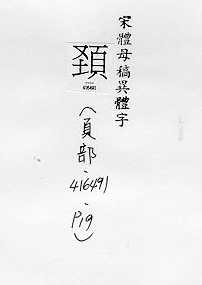 宋體母稿異體字
頸
416491
(頁部
-
416491
-
P19)